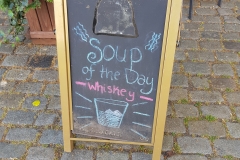 Soup
of the Day
Whiskey